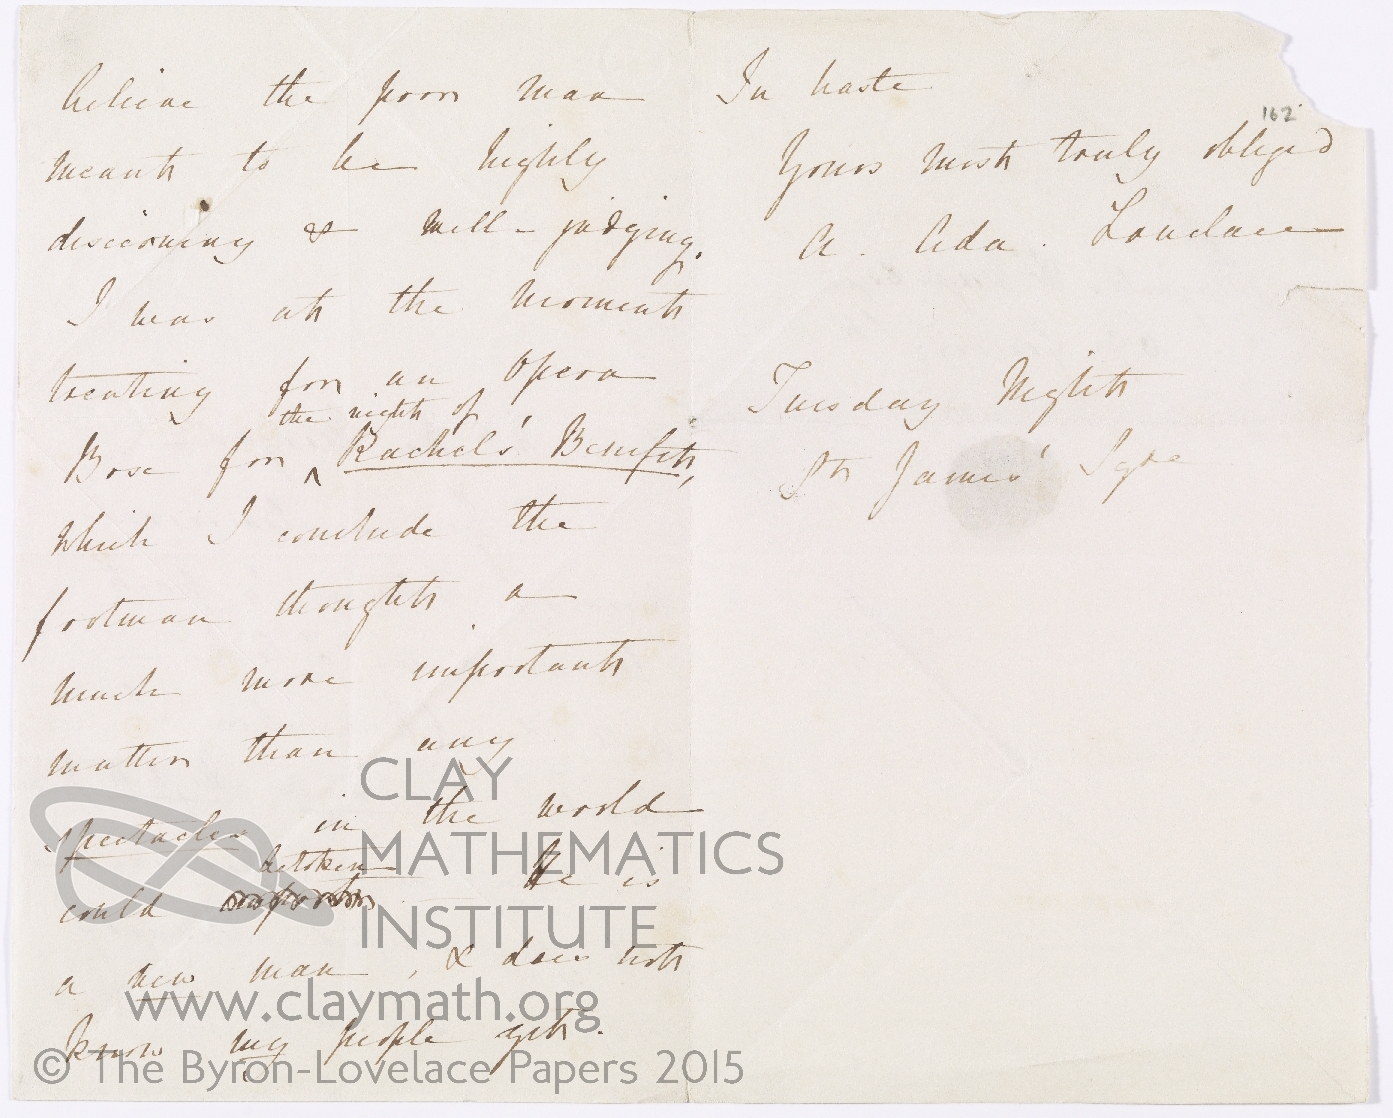 believe the poor man
meant to be highly
discerning & well-judging.
I was at the moment
treating for an Opera
the night of
Box for ^ Rachel's Benefit,
which I conclude the
footman thought a
much more important
matter than any
spectacles in the world
betoken
could He is
a new man, & does not
know my people yet.
In haste
162
Yours most truly obliged
A. Ada. Lovelace
Tuesday Night
St James' Sqre
CLAY
MATHEMATICS
INSTITUTE
www.claymath.org
© The Byron-Lovelace Papers 2015